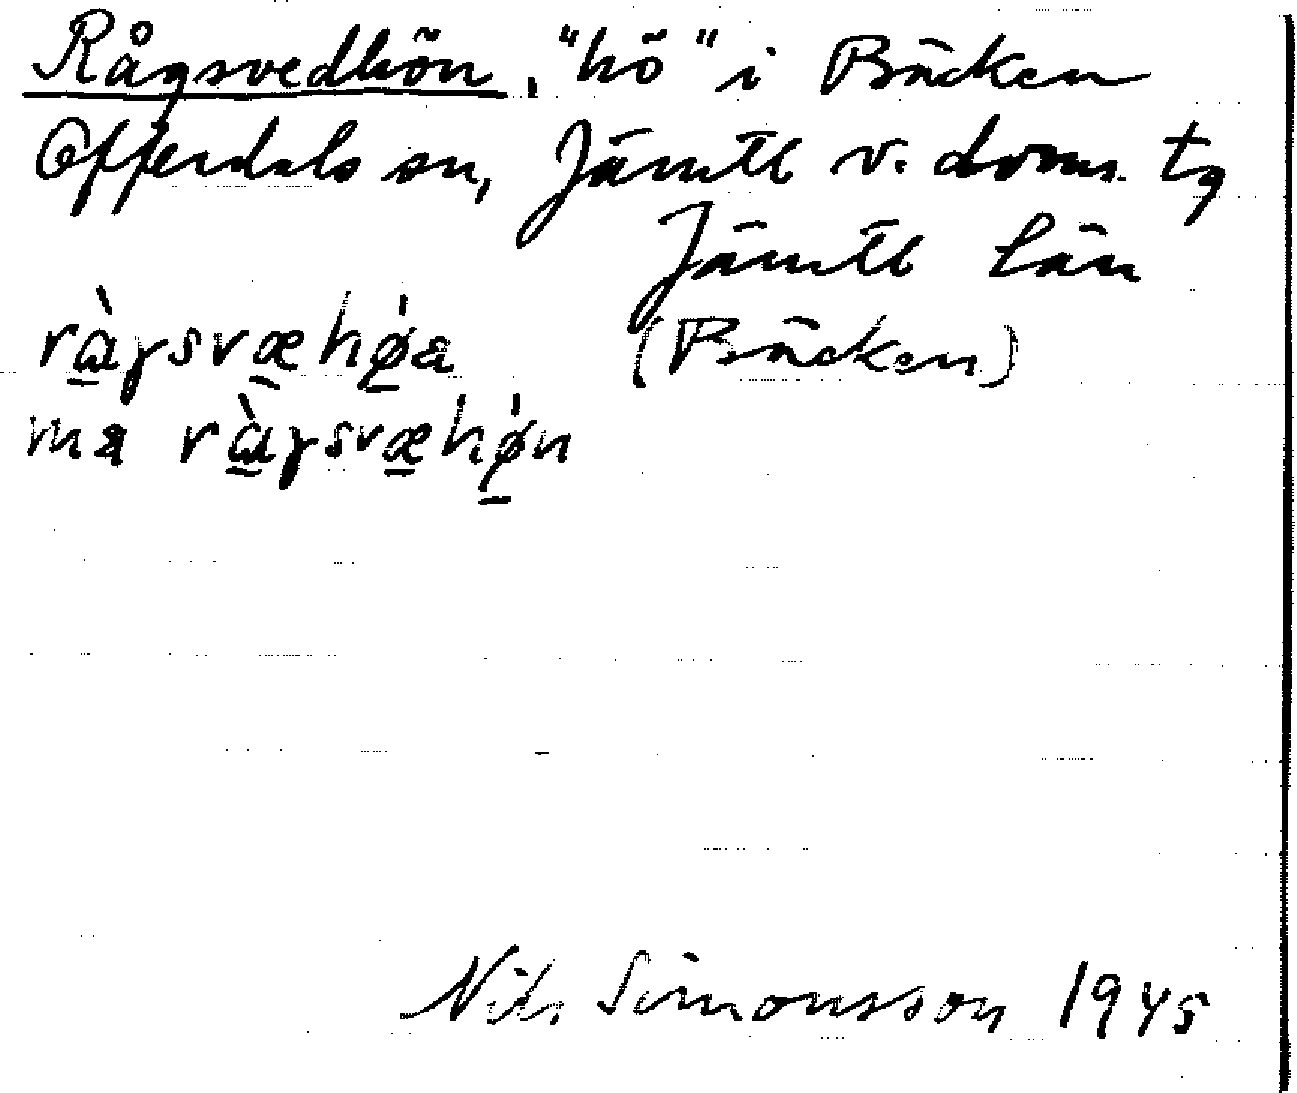 Rågsvedhön, "hö" i Bäcken
Offerdals sn, Jämtl v. doms. tg
Jämtl län
ràgsvæhǿa (Bäcken)
ma ràgsvæhǿn
Nils Simonsson 1945